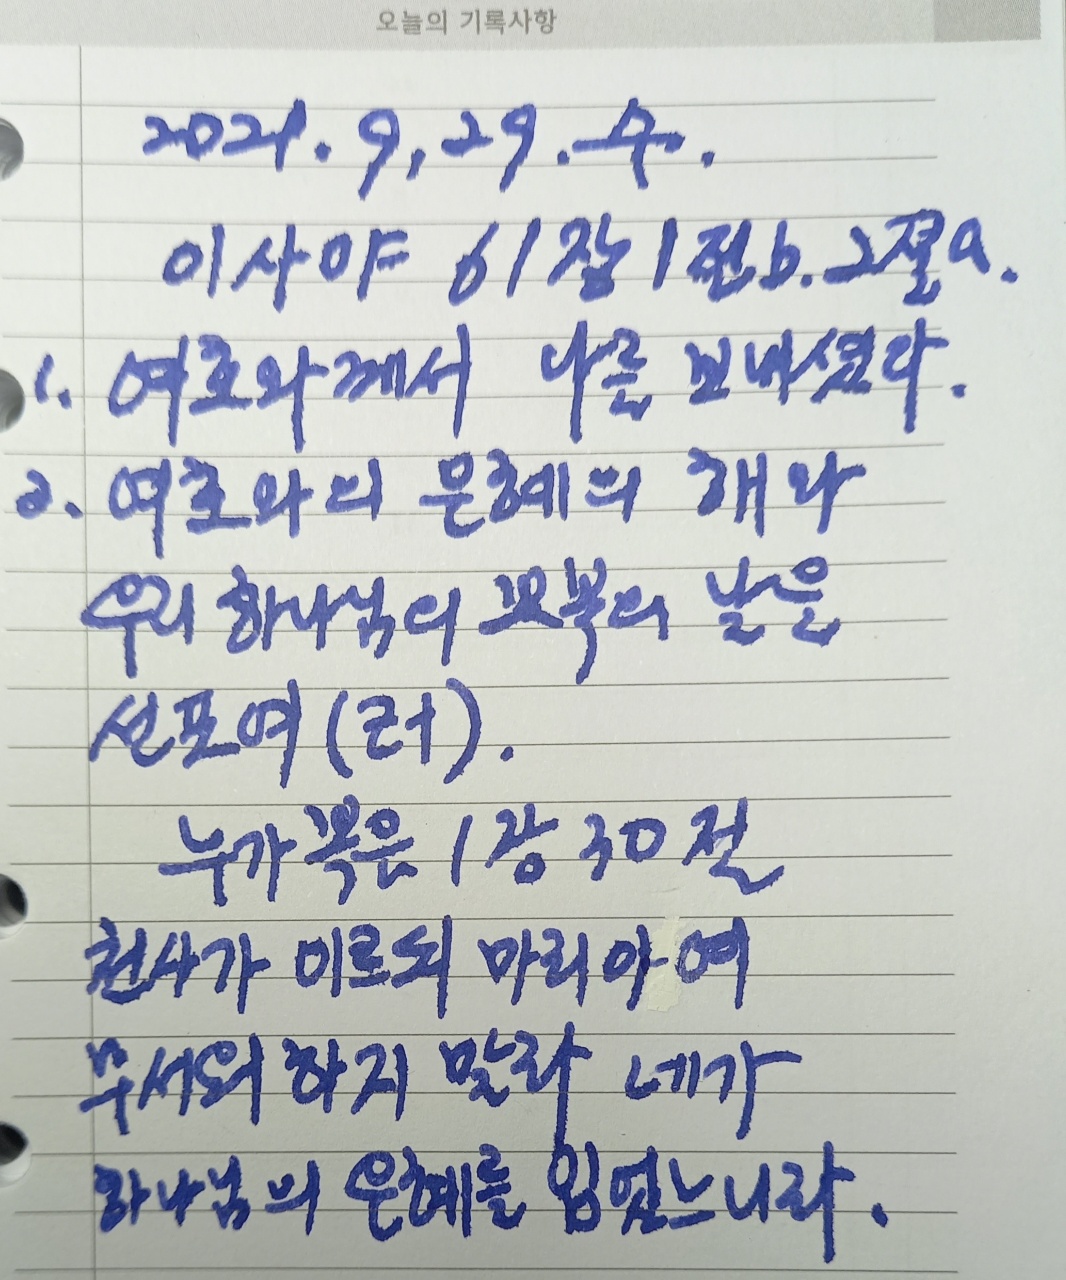 오늘의 기록사항
2021. 9, 29. 수.
이사야 61장 1절b. 2절a.
1. 여호와께서 나를 보내셨다.
2. 여호와의 은혜의 해와
우리 하나님의 보복의 날을
선포여(러).
누가복음 1장 30절
천사가 이르되 마리아여
무서워하지 말라 네가
하나님의 은혜를 입었느니라.